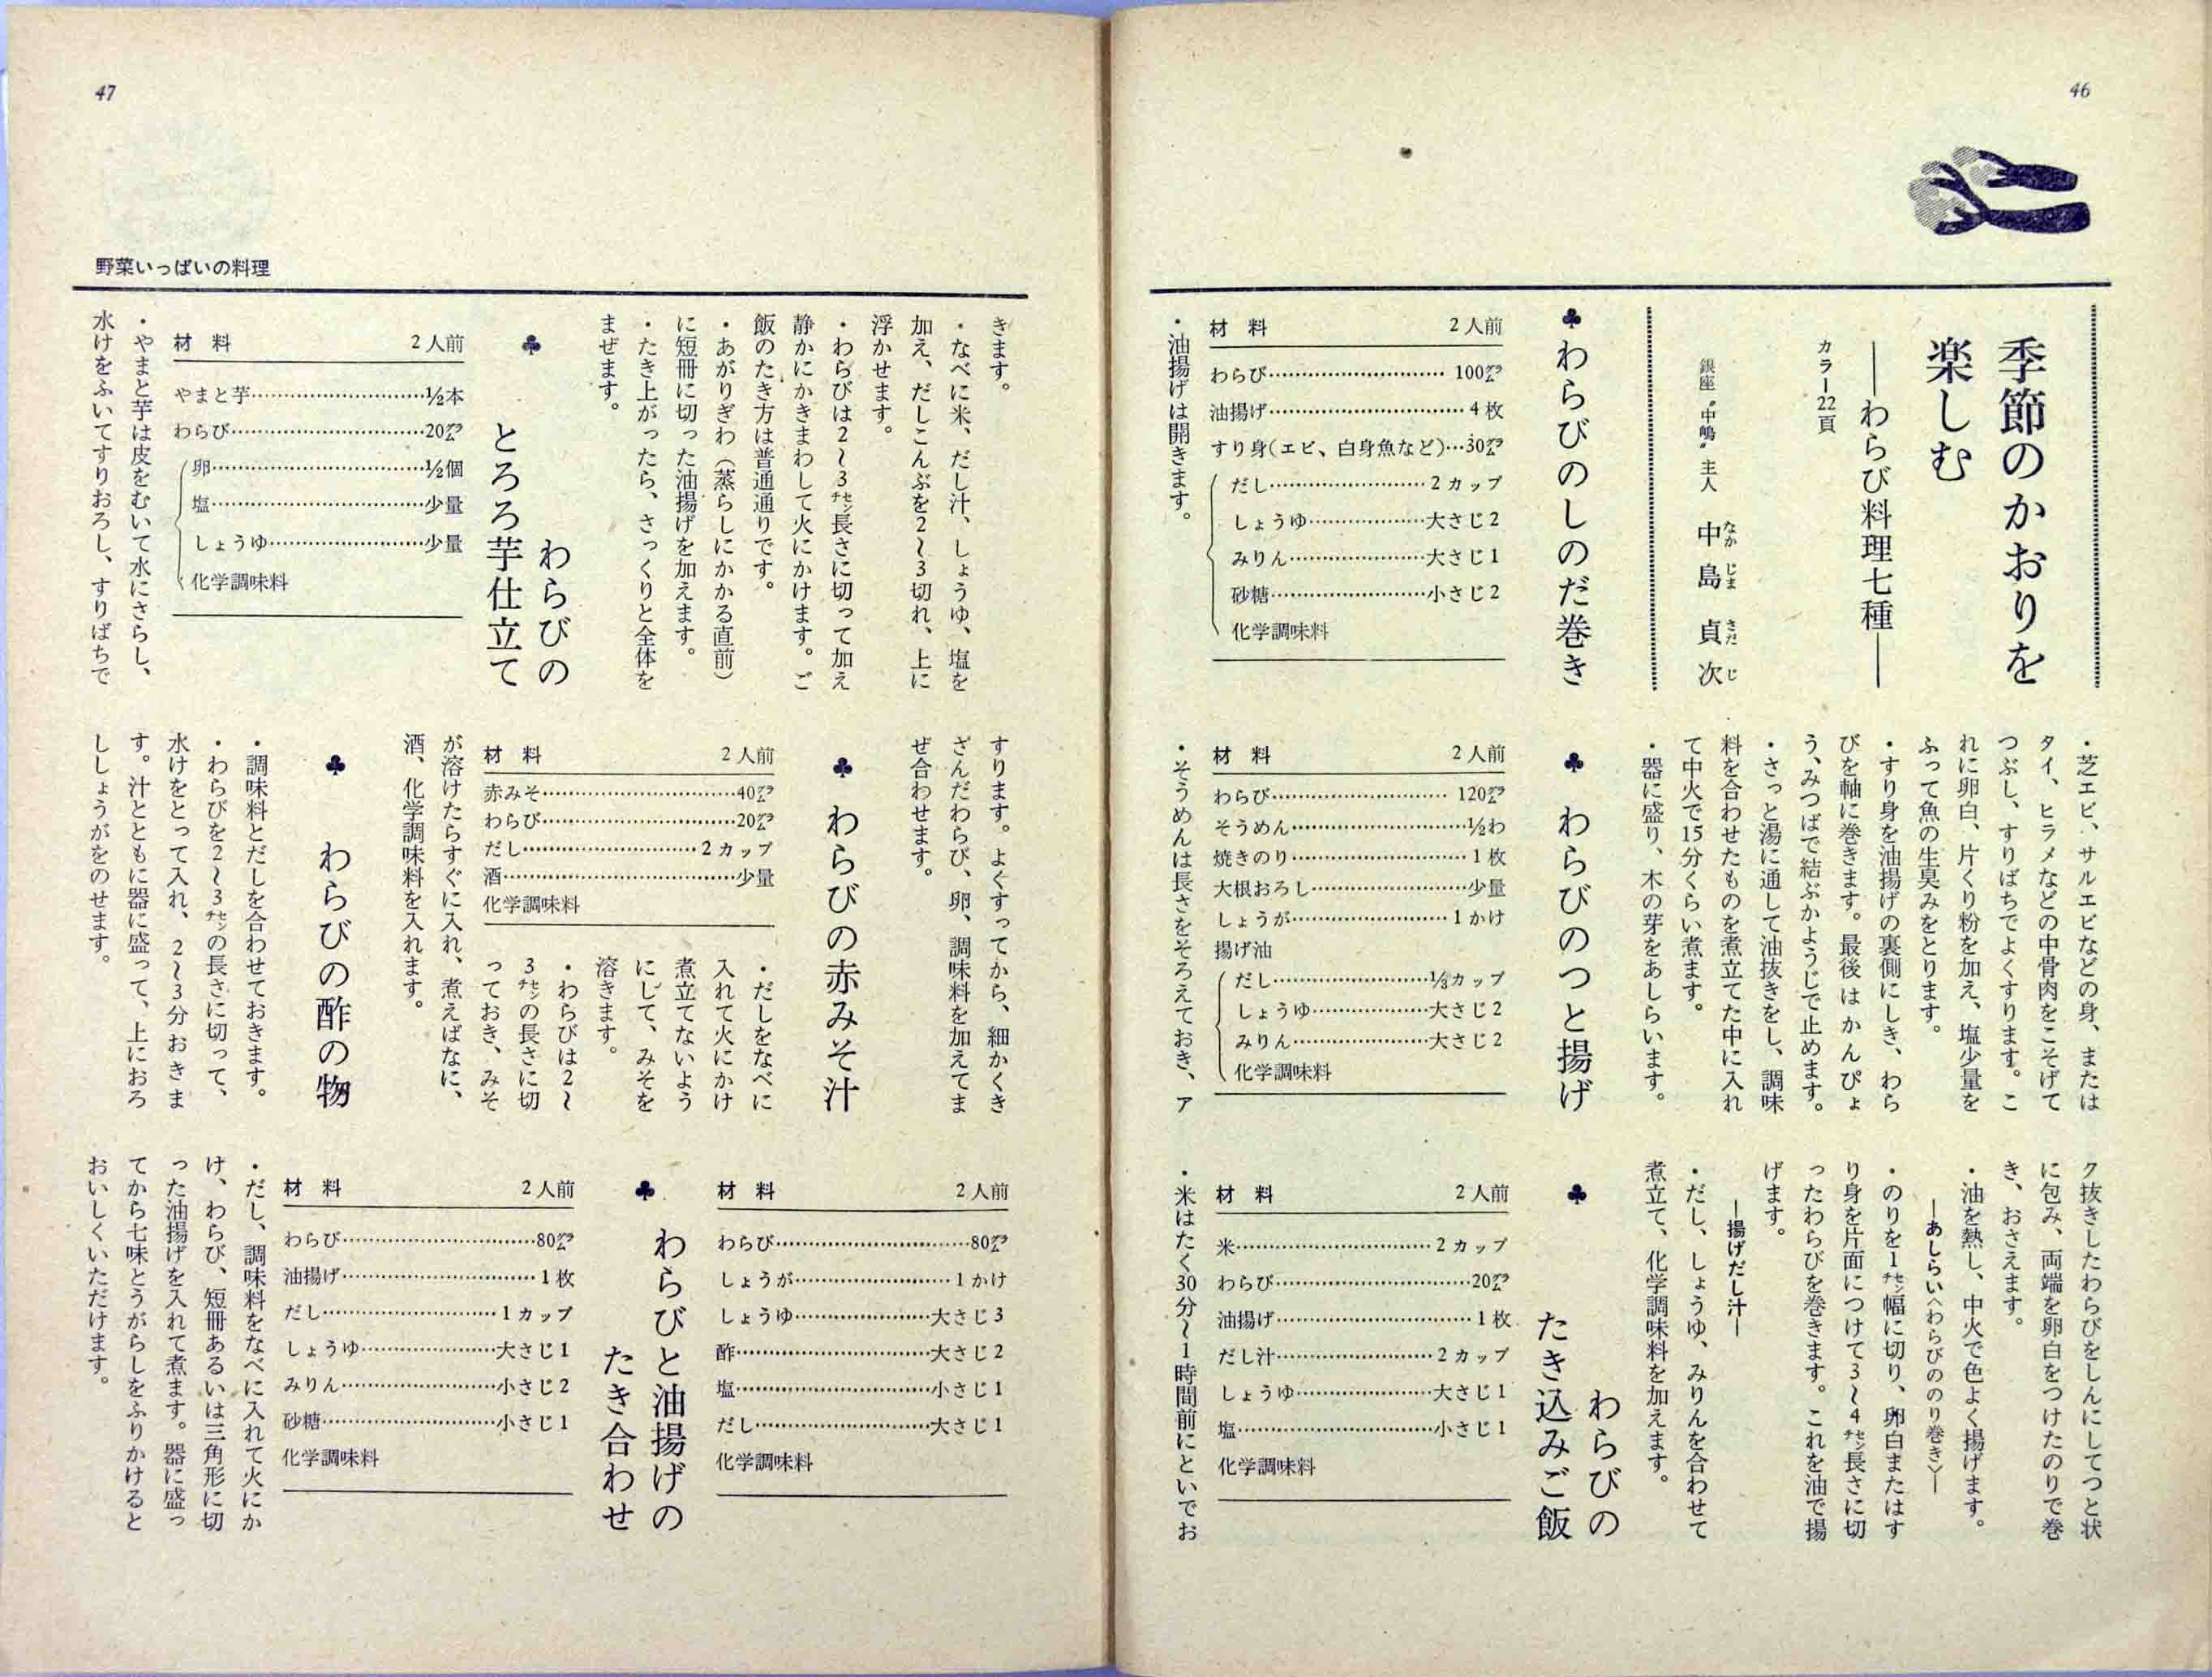 46
季節のかおりを
楽しむ
──わらび料理七種──
カラー22頁
銀座〝中嶋〟主人 中島貞次
なか じま さだ じ
♣わらびのしのだ巻き
材 料 2人前
わらび……100グラム
油揚げ……4枚
すり身(エビ、白身魚など)…30グラム
だし……2カップ
しょうゆ……大さじ2
みりん……大さじ1
砂糖……小さじ2
化学調味料
・油揚げは開きます。
・芝エビ、サルエビなどの身、または
タイ、ヒラメなどの中骨肉をこそげて
つぶし、すりばちでよくすります。こ
れに卵白、片くり粉を加え、塩少量を
ふって魚の生臭みをとります。
・すり身を油揚げの裏側にしき、わら
びを軸に巻きます。最後はかんぴょ
う、みつばで結ぶかようじで止めます。
・さっと湯に通して油抜きをし、調味
料を合わせたものを煮立てた中に入れ
て中火で15分くらい煮ます。
・器に盛り、木の芽をあしらいます。
♣ わらびのつと揚げ
材 料 2人前
わらび……120グラム
そうめん……½わ
焼きのり……1枚
大根おろし……少量
しょうが……1かけ
揚げ油
だし……⅓カップ
しょうゆ……大さじ2
みりん……大さじ2
化学調味料
・そうめんは長さをそろえておき、ア
ク抜きしたわらびをしんにしてつと状
に包み、両端を卵白をつけたのりで巻
き、おさえます。
・油を熱し、中火で色よく揚げます。
─あしらい〈わらびののり巻き〉─
・のりを1センチ幅に切り、卵白またはす
り身を片面につけて3〜4センチ長さに切
ったわらびを巻きます。これを油で揚
げます。
─揚げだし汁─
・だし、しょうゆ、みりんを合わせて
煮立て、化学調味料を加えます。
♣ わらびの
たき込みご飯
材 料 2人前
米……2カップ
わらび……20グラム
油揚げ……1枚
だし汁……2カップ
しょうゆ……大さじ1
塩……小さじ1
化学調味料
・米はたく30分〜1時間前にといでお
47
野菜いっぱいの料理
きます。
・なべに米、だし汁、しょうゆ、塩を
加え、だしこんぶを2〜3切れ、上に
浮かせます。
・わらびは2〜3センチ長さに切って加え
静かにかきまわして火にかけます。ご
飯のたき方は普通通りです。
・あがりぎわ(蒸らしにかかる直前)
に短冊に切った油揚げを加えます。
・たき上がったら、さっくりと全体を
まぜます。
♣ わらびの
とろろ芋仕立て
材 料 2人前
やまと芋……½本
わらび……20グラム
卵……½個
塩……少量
しょうゆ……少量
化学調味料
・やまと芋は皮をむいて水にさらし、
水けをふいてすりおろし、すりばちで
すります。よくすってから、細かくき
ざんだわらび、卵、調味料を加えてま
ぜ合わせます。
♣ わらびの赤みそ汁
材 料 2人前
赤みそ……40グラム
わらび……20グラム
だし……2カップ
酒……少量
化学調味料
・だしをなべに
入れて火にかけ
煮立てないよう
にして、みそを
溶きます。
・わらびは2〜
3センチの長さに切
っておき、みそ
が溶けたらすぐに入れ、煮えばなに、
酒、化学調味料を入れます。
♣ わらびの酢の物
・調味料とだしを合わせておきます。
・わらびを2〜3センチの長さに切って、
水けをとって入れ、2〜3分おきま
す。汁とともに器に盛って、上におろ
ししょうがをのせます。
材 料 2人前
わらび……80グラム
しょうが……1かけ
しょうゆ……大さじ3
酢……大さじ2
塩……小さじ1
だし……大さじ1
化学調味料
♣ わらびと油揚げの
たき合わせ
材 料 2人前
わらび……80グラム
油揚げ……1枚
だし……1カップ
しょうゆ……大さじ1
みりん……小さじ2
砂糖……小さじ1
化学調味料
・だし、調味料をなべに入れて火にか
け、わらび、短冊あるいは三角形に切
った油揚げを入れて煮ます。器に盛っ
てから七味とうがらしをふりかけると
おいしくいただけます。